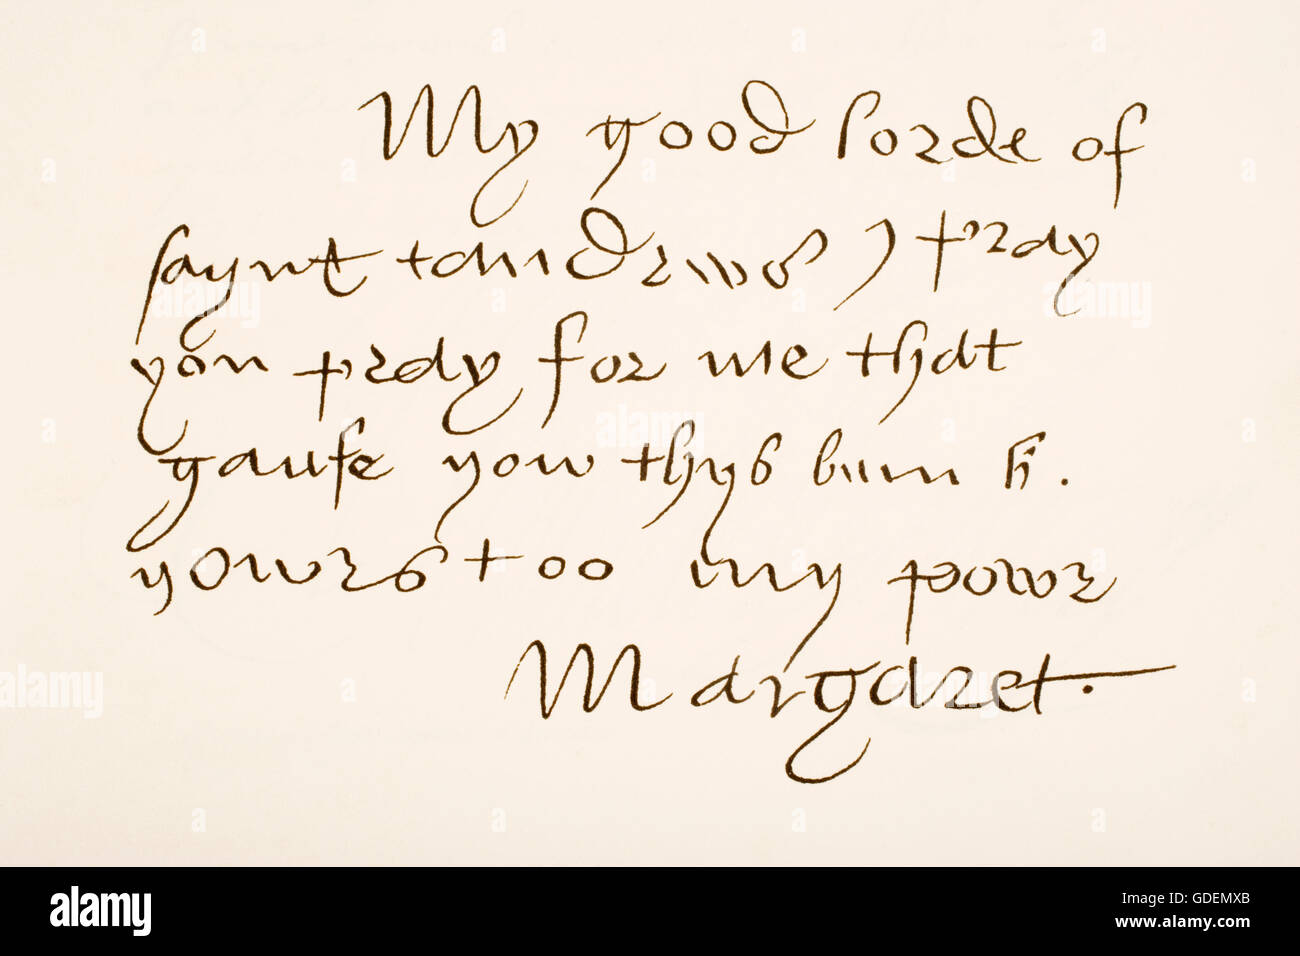 My good lorde of
saynt tandrews I pray
you pray for me that
gaufe yow thys buuk
yowrs too my powr
Margaret.
alamy
Image ID: GDEMXB
www.alamy.com